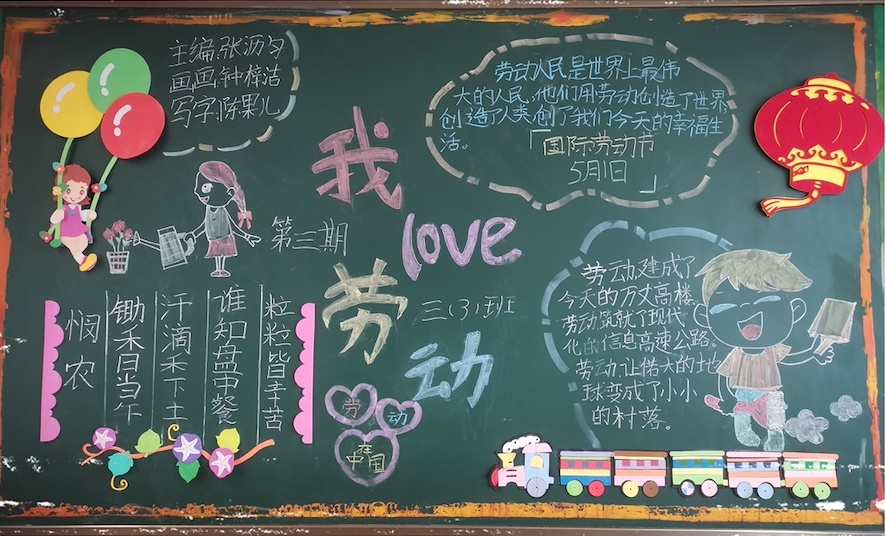 主编:张沥匀
画画:钟梓洁
写字:陈果儿
第三期
我
love
劳
动
三(3)班
劳动人民是世界上最伟
大的人民,他们用劳动创造了世界,
创造了人类,创了我们今天的幸福生
活。
「国际劳动节
5月1日」
悯农
锄禾日当午
汗滴禾下土
谁知盘中餐
粒粒皆辛苦
劳
动
在
中国
劳动,建成了
今天的万丈高楼。
劳动筑就了现代
化的信息高速公路。
劳动,让偌大的地
球变成了小小
的村落。